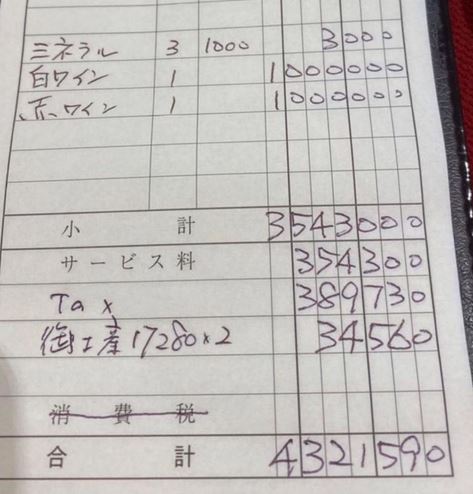 ミネラル 3 1000 3000
白ワイン 1 1000000
赤ワイン 1 1000000
小計 3543000
サービス料 354300
Tax 389730
御土産 17280×2 34560
消費税
合計 4321590